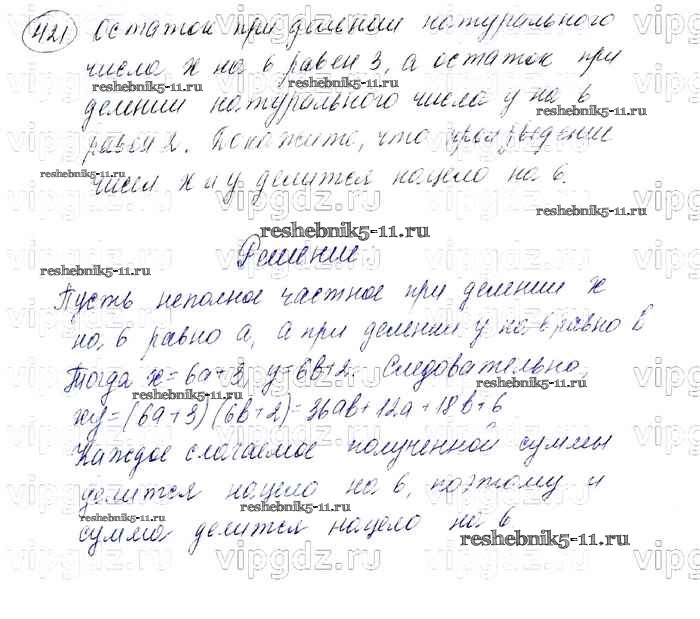 421 Остаток при делении натурального
числа x на 6 равен 3, а остаток при
reshebnik5-11.ru reshebnik5-11.ru
делении натурального числа y на 6
равен 2. Докажите, что произведение
reshebnik5-11.ru
чисел x и y делится нацело на 6.
reshebnik5-11.ru
reshebnik5-11.ru
Решение
reshebnik5-11.ru
Пусть неполное частное при делении x
на 6 равно a, а при делении y на 6 равно b
Тогда x=6a+3, y=6b+2. Следовательно,
reshebnik5-11.ru
xy=(6a+3)(6b+2)=36ab+12a+18b+6
Каждое слагаемое полученной суммы
делится нацело на 6, поэтому и
reshebnik5-11.ru
сумма делится нацело на 6
reshebnik5-11.ru
vipgdz.ru vipgdz.ru vipgdz.ru